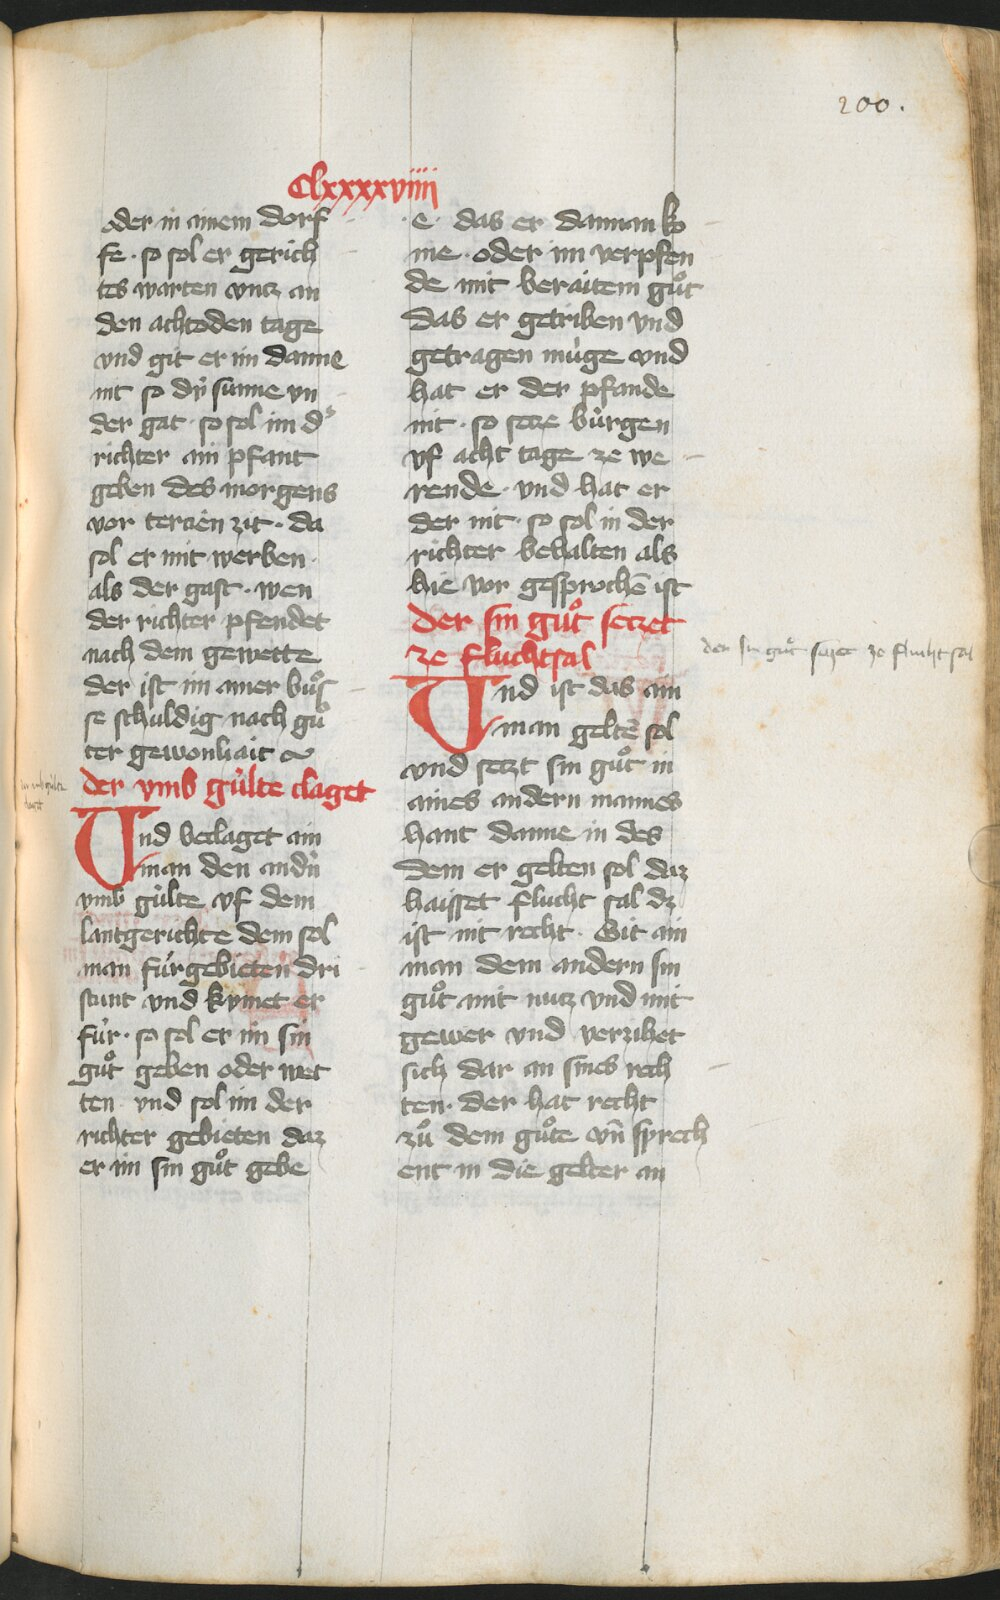 200.
Clxxxxviiii
oder in ainem dorf
fe · so sol er gerich
tes warten vntz an
den achtoden tage
vnd git er im danne
nit so dv̍ sunne vn
der gat · so sol im d͛
richter ain pfant
geben des morgens
vor tercien zit · da
sol er mit werben ·
als der gast · wen
der richter pfendet
nach dem gewette
der ist im ainer buͦs
se schuldig nach guͦ
ter gewonhait
der vmb gu̍lte claget
Vnd beclaget ain
man den andn̄
vmb gu̍lte vf dem
lantgerichte dem sol
man fu̍rgebieten dri
stunt vnd kvmet er
fu̍r · so sol er im sin
guͦt geben oder wet
ten vnd sol im der
richter gebieten daz
er im sin guͦt gebe
· e · das er dannan ko
me · oder im verpfen
de mit beraitem guͦt
das er getriben vnd
getragen mu̍ge vnd
hat er der pfande
nit · so setze bu̍rgen
vf acht tage ze we
rende · vnd hat er
der nit · so sol in der
richter behalten als
hie vor gesprochē ist
der sin guͦt setzet
ze fluchtsal
der sin guͦt setzet ze fluchtsal
Vnd ist das ain
man geltē sol
vnd setzt sin guͦt in
aines andern mannes
hant danne in des
dem er gelten sol daz
haisset flucht sal dz
ist nit recht · Git ain
man dem andern sin
guͦt mit nutz vnd mit
gewer vnd verzihet
sich dar an sines rech
ten · der hat recht
zuͦ dem guͦte vn̄ sprech
ent in die gelter an